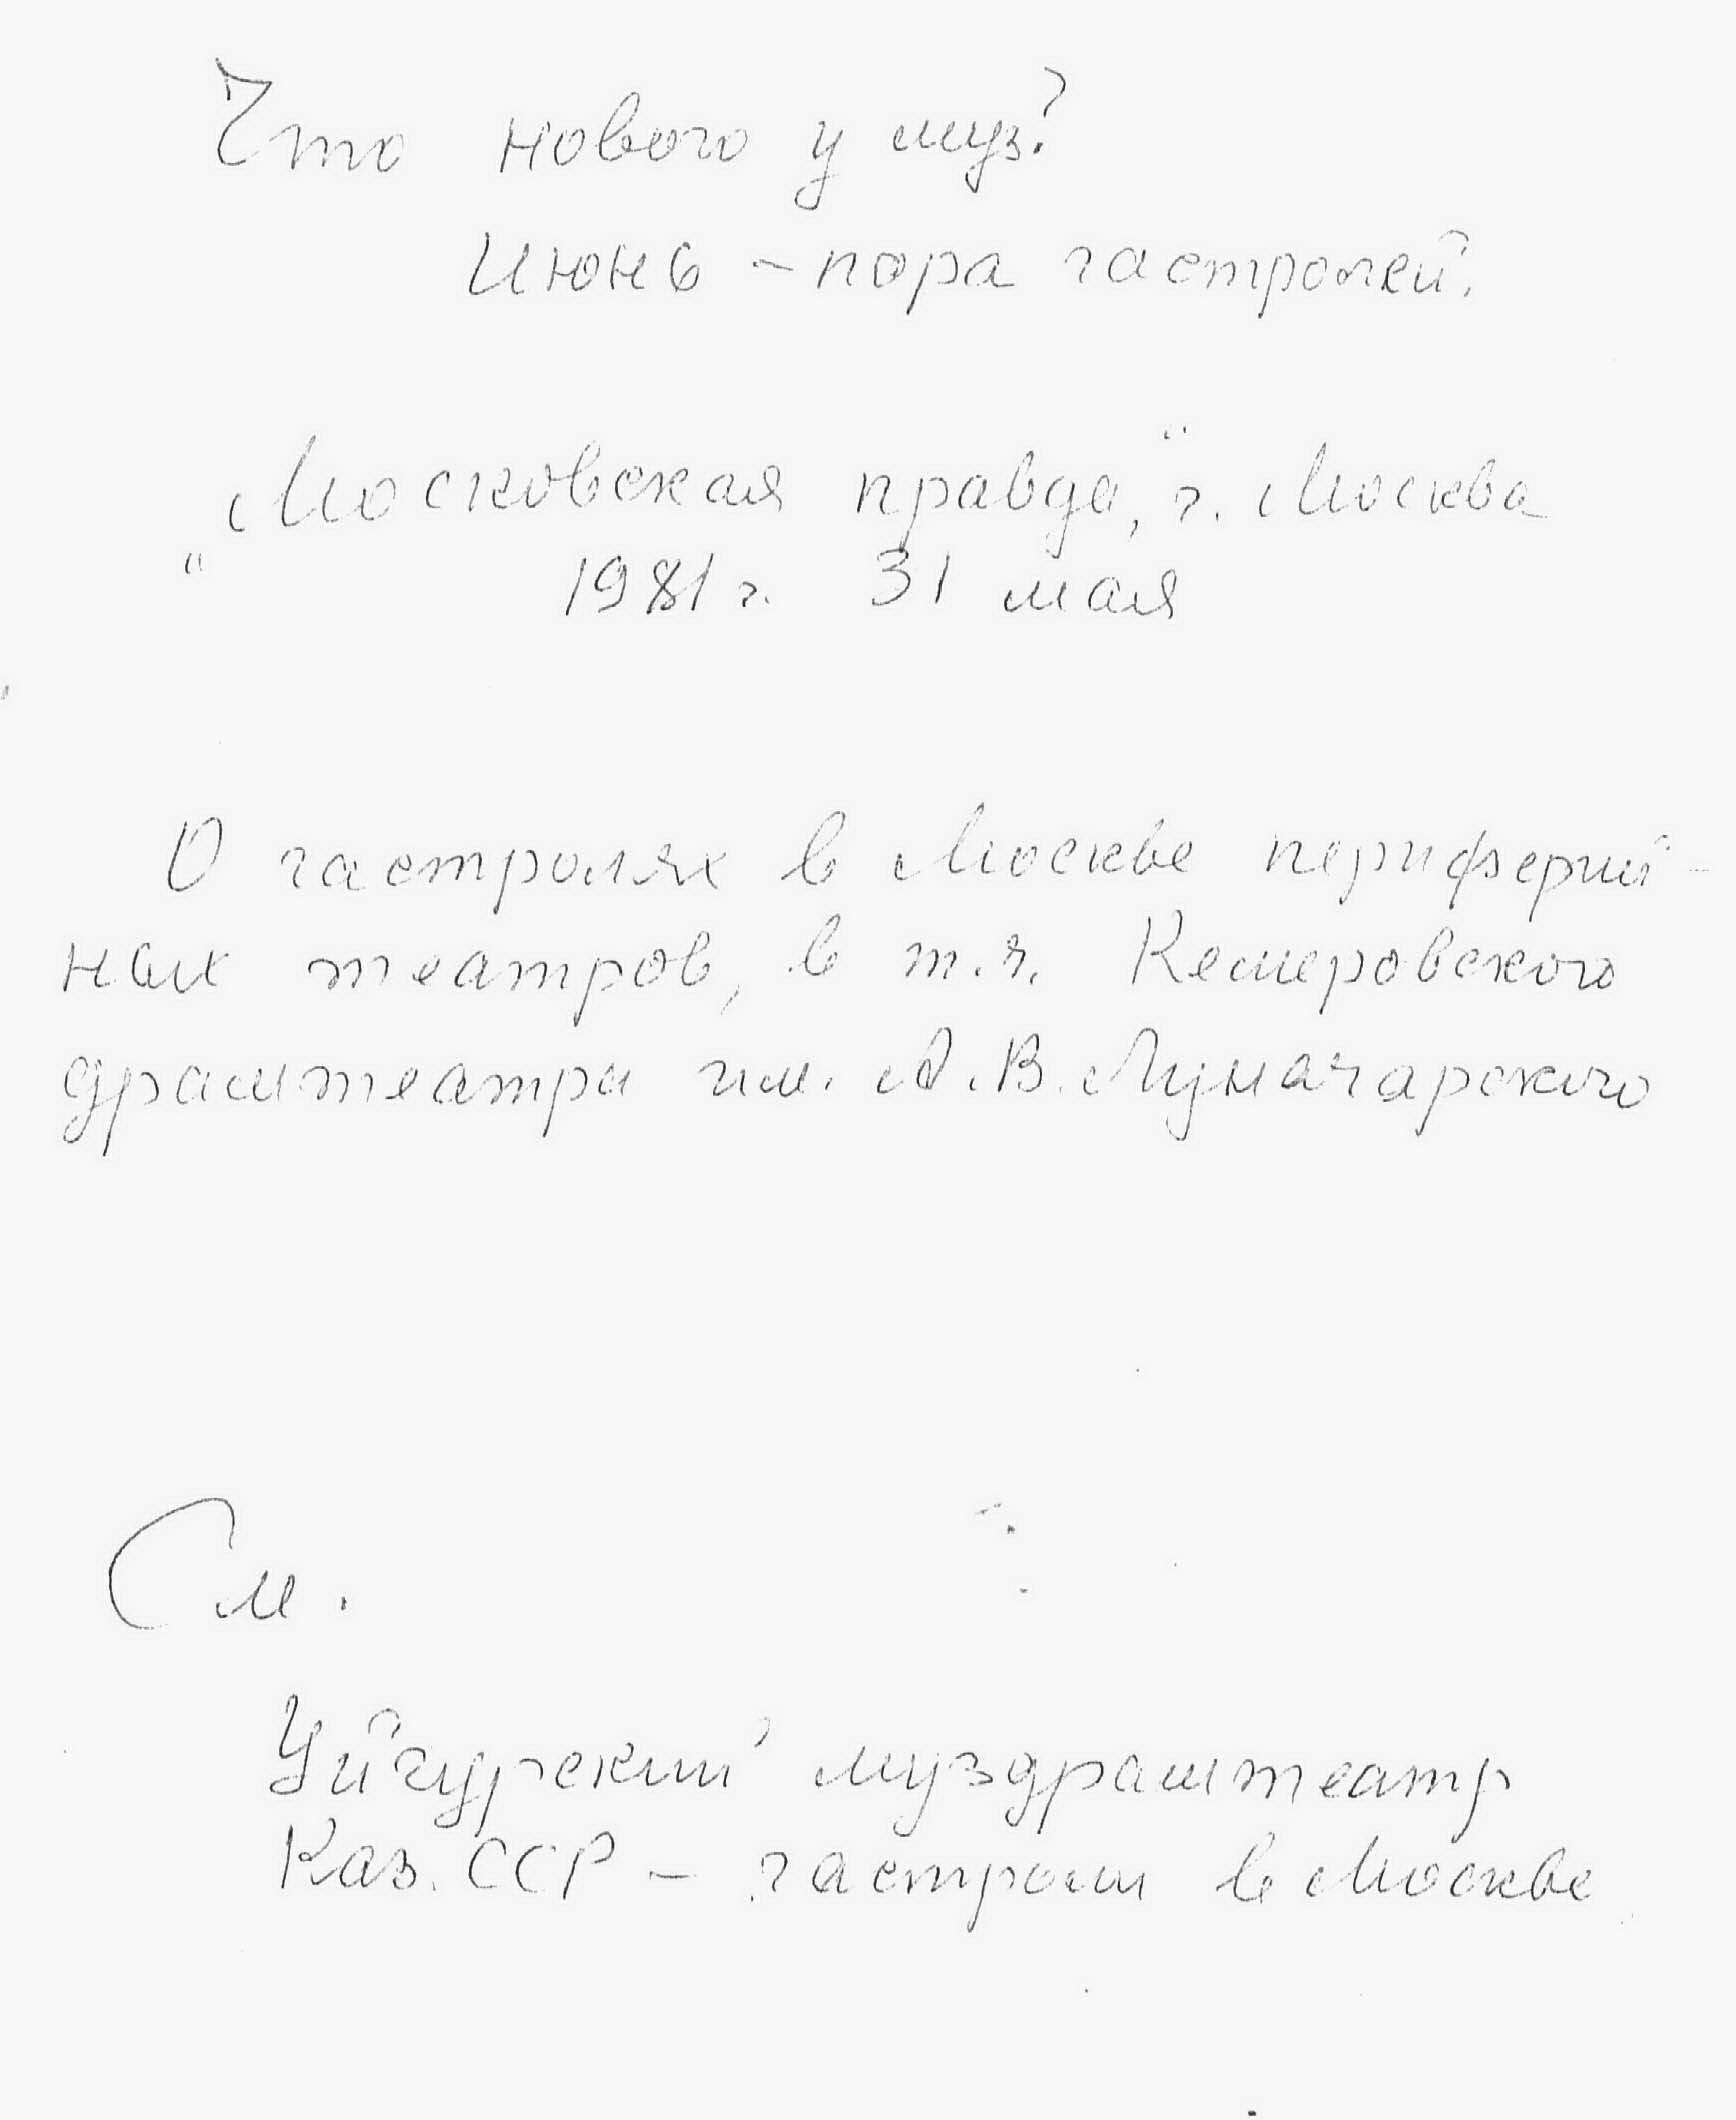 Что нового у муз?
Июнь - пора гастролей.
„Московская правда“, г. Москва
1981 г. 31 мая
О гастролях в Москве периферий-
ных театров, в т.ч. Кемеровского
драмтеатра им. А.В. Луначарского
См.
Уйгурский муздрамтеатр
Каз. ССР - гастроли в Москве